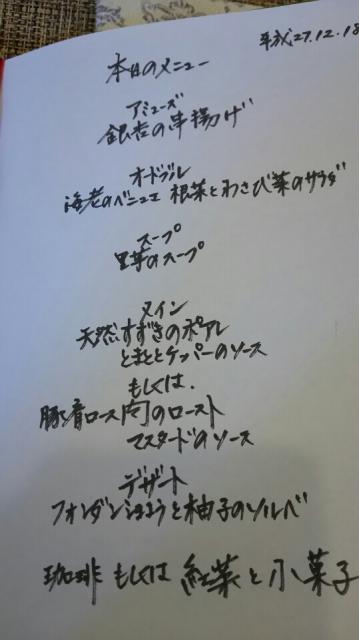 平成27.12.18
本日のメニュー
アミューズ
銀杏の串揚げ
オードブル
海老のベニエ 根菜とわさび菜のサラダ
スープ
里芋のスープ
メイン
天然すずきのポアレ
とまととケッパーのソース
もしくは.
豚肩ロース肉のロースト
マスタードのソース
デザート
フォンダンしょこらと柚子のソルベ
珈琲 もしくは 紅葉と小菓子